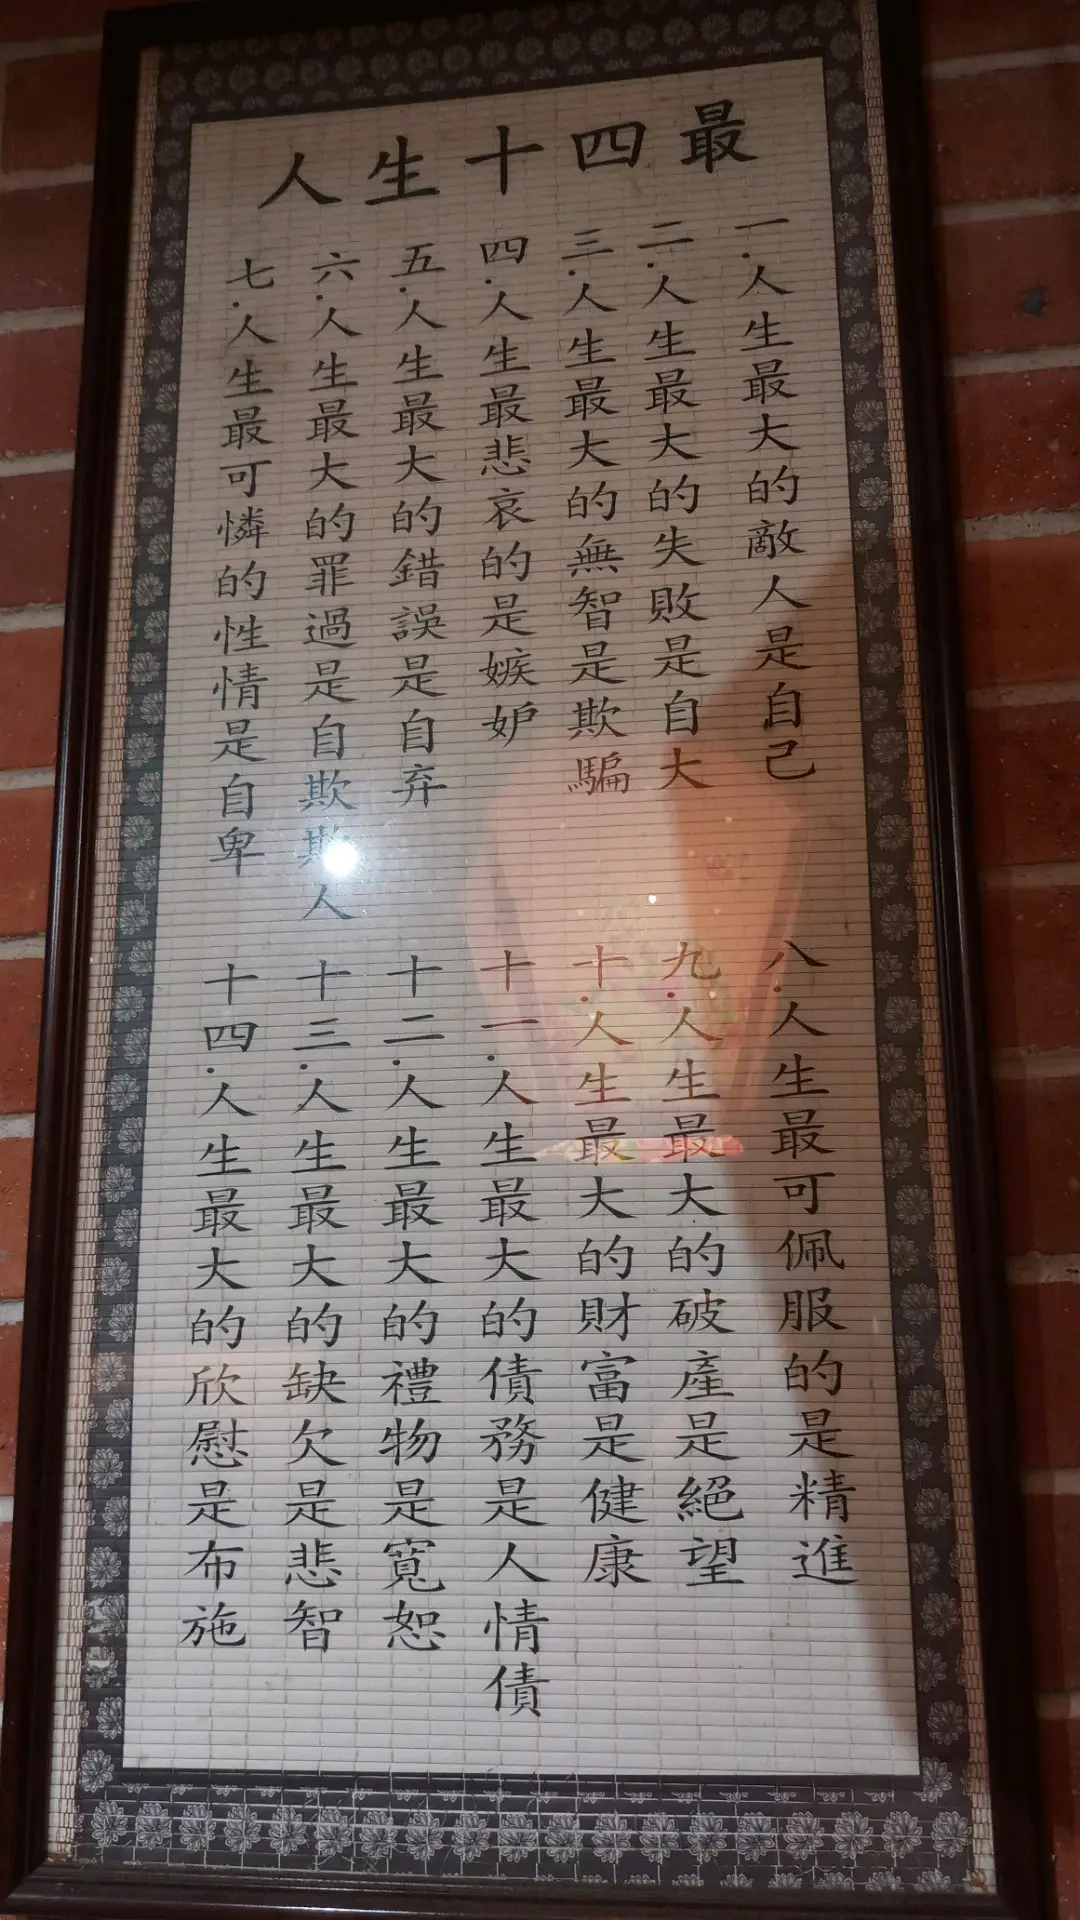 人生十四最
一.人生最大的敵人是自己
二.人生最大的失敗是自大
三.人生最大的無智是欺騙
四.人生最悲哀的是嫉妒
五.人生最大的錯誤是自弃
六.人生最大的罪過是自欺欺人
七.人生最可憐的性情是自卑
八.人生最可佩服的是精進
九.人生最大的破產是絕望
十.人生最大的財富是健康
十一.人生最大的債務是人情債
十二.人生最大的禮物是寬恕
十三.人生最大的缺欠是悲智
十四.人生最大的欣慰是布施